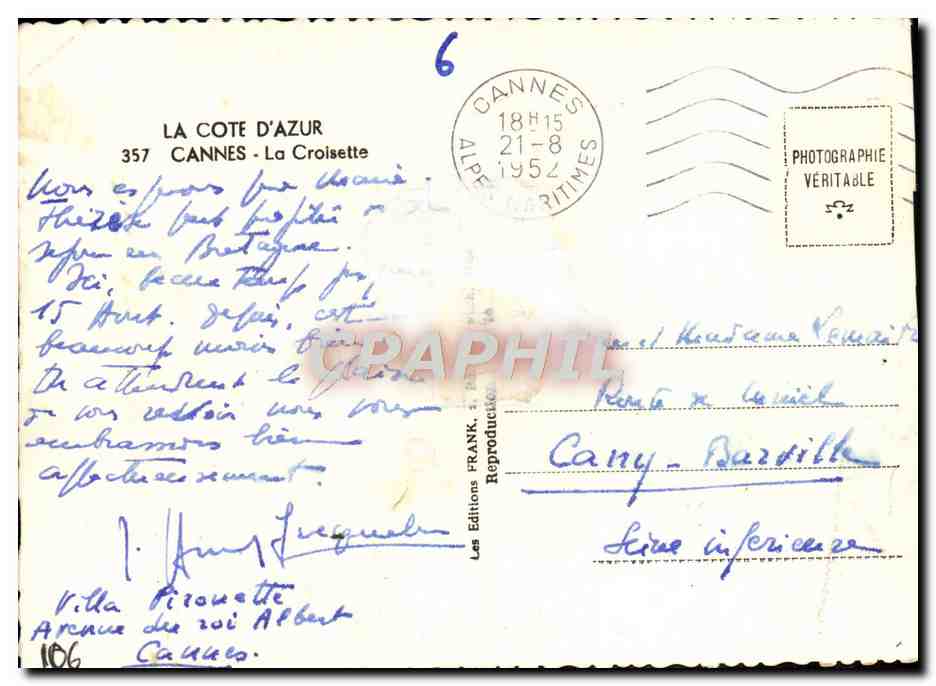 6
CANNES
18H15
21-8
1952
ALPES MARITIMES
PHOTOGRAPHIE
VÉRITABLE
LA COTE D'AZUR
357 CANNES - La Croisette
Nous espérons que Marie-
Thérèse
séjour en Bretagne.
Ici, beau temps
15 Août. depuis, c'est
beaucoup moins bien
En attendant le plaisir
de vous revoir nous vous
embrassons bien
affectueusement.
J.
Villa Pirouette
Avenue du roi Albert
Cannes.
106
Les Editions FRANK,
Reproduction
et Madame Lemaitre
Route de
Cany-Barville
Seine inférieure
CPAPHIL